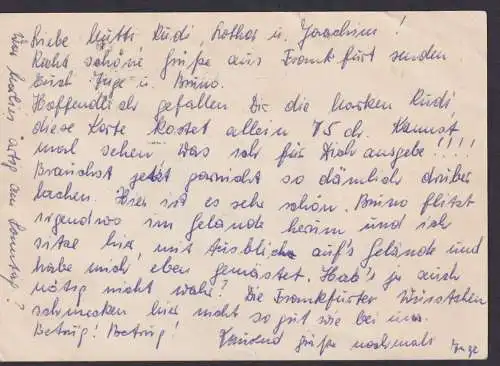 Liebe Mutti Rudi, Lothar u. Joachim!
Recht schöne Grüße aus Frankfurt senden
Euch Inge u. Bruno.
Hoffendlich gefallen Dir die Marken Rudi,
diese Karte kostet allein 75 ch. Kannst
mal sehen was ich für Dich ausgebe!!!!
Brauchst jetzt garnicht so dämlich drüber
lachen. Hier ist es sehr schön. Bruno flitzt
irgendwo im Gelände herum und ich
sitze hier, mit Ausblick auf's Gelände und
habe mich eben gemästet. Hab's ja auch
nötig nicht wahr? Die Frankfurter Würstchen
schmecken hier nicht so gut wie bei uns.
Betrug! Betrug! Tausend Grüße nochmals Inge
am Sonntag?